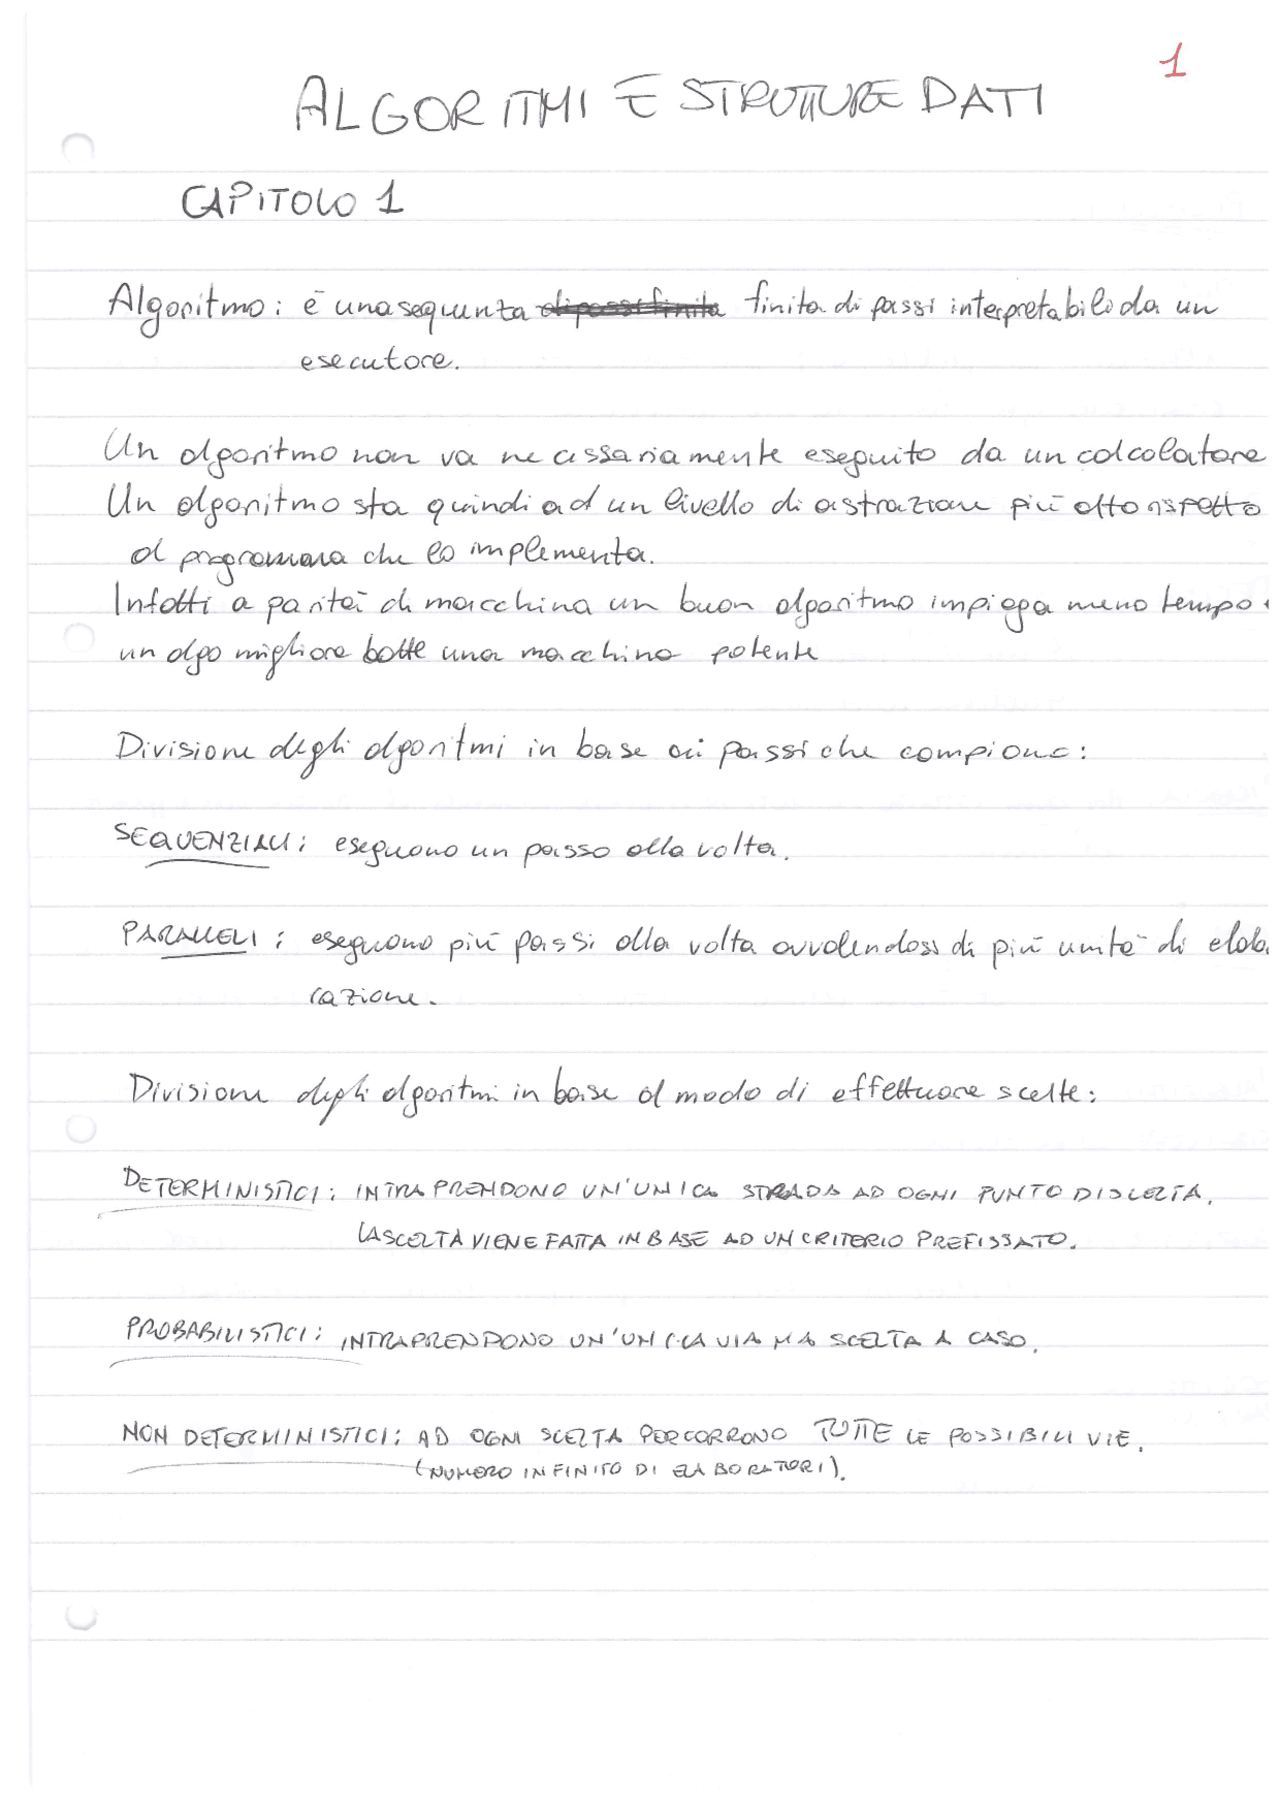 1
ALGORITMI E STRUTTURE DATI
CAPITOLO 1
Algoritmo: è una sequenza di passi finita finita di passi interpretabili da un
esecutore.
Un algoritmo non va necessariamente eseguito da un calcolatore
Un algoritmo sta quindi ad un livello di astrazione più alto rispetto
al programma che lo implementa.
Infatti a parità di macchina un buon algoritmo impiega meno tempo
un algo migliore batte una macchina potente
Divisione degli algoritmi in base ai passi che compiono:
SEQUENZIALI: eseguono un passo alla volta.
PARALLELI: eseguono più passi alla volta avvalendosi di più unità di elab
razione.
Divisione degli algoritmi in base al modo di effettuare scelte:
DETERMINISTICI: INTRAPRENDONO UN'UNICA STRADA AD OGNI PUNTO DI SCELTA.
LA SCELTA VIENE FATTA IN BASE AD UN CRITERIO PREFISSATO.
PROBABILISTICI: INTRAPRENDONO UN'UNICA VIA MA SCELTA A CASO.
NON DETERMINISTICI: AD OGNI SCELTA PERCORRONO TUTTE LE POSSIBILI VIE.
(NUMERO INFINITO DI ELABORATORI).